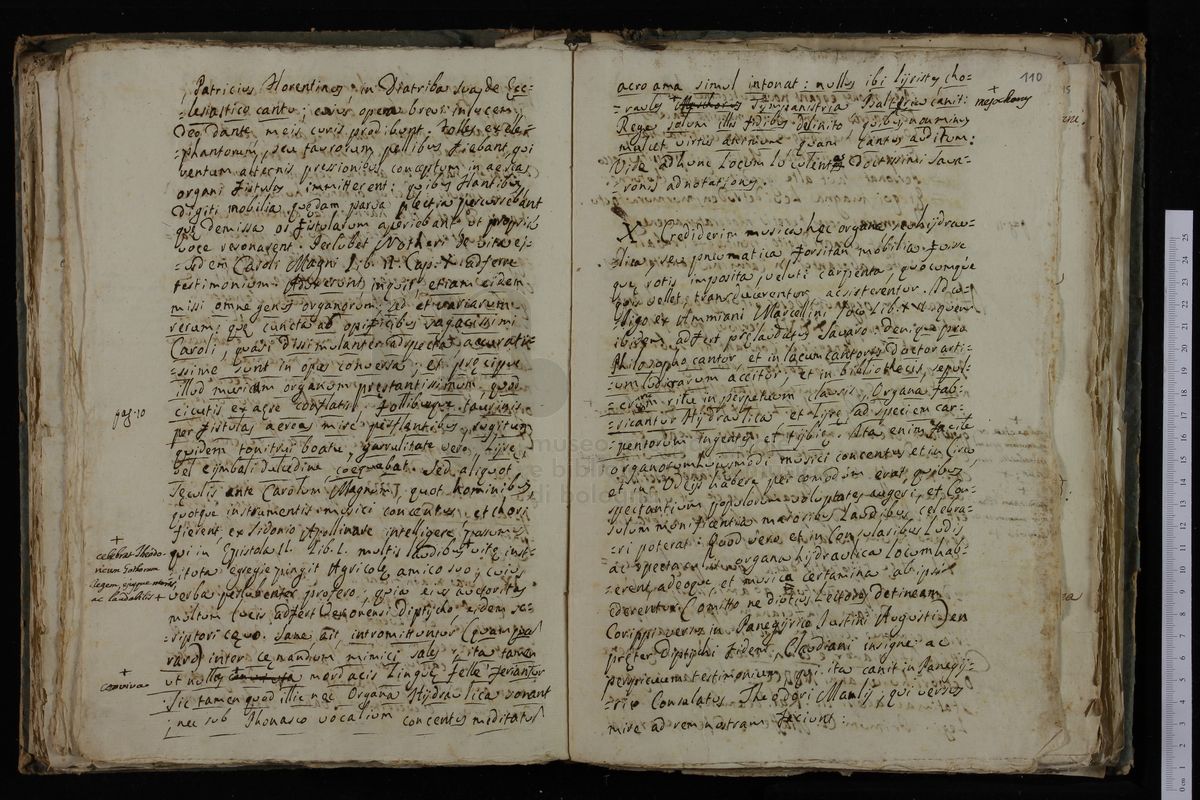 Patricius Florentinus in Diatribas suas de Ecc=
=lesiastico cantu; cuius opera brevi in lucem
Deo Dante, meis curis prodibunt. Folles ex ele=
=phantorum, seu taurorum pellibus fiebant, qui
ventum alternis pressionibus conceptum in aereas
organi fistulas immitterent: quibus flantibus
digiti mobilia quædam parva plectra percurrebant
quæ demissa os fistularum aperiebant ut propria
voce resonarent. Iuvat Notkeri de vita ej=
=usdem Caroli Magni Lib. II. Cap. X adferre
testimonium. Adduxerunt inquit etiam eidem
missi omne genus organorum, sed et variarum
rerum: quæ cuncta ab opificibus sagacissimi
Caroli, quasi dissimulanter adspecta accuratis=
=sime sunt in opus conversa; et præcipue
illud musicum organum prestantissimum, quod
pag. 10
cicutis ex aere conflatis, follibusque taurinis
per fistulas aereas mire perflantibus, rugitum
quidem tonitrui boatu, garrulitate vero, Lyræ,
vel cymbali dulcedine coequabat. Sed aliquot
seculis ante Carolum Magnum, quot hominibus
quotque instrumentis musici concentus, et chori
fierent ex Sidonio Apollinare intelligere possumus
+
celebrat Theodo-
ricum Gothorum
Regem, ejusque mores
ac laudabilis +
qui in Epistola II. Lib. I. multis laudibus vitæ inst=
=ituta egregie pingit Agricolæ amico suo; cuius
verba perlubenter profero, quia eius auctoritas
multum lucis adfert Veronensi Diptycho, eidem sc=
=riptori coævo. Sane, ait, intromittuntur (quanquam
raro) inter cænandum mimici sales, ita tamen
+
conviva
ut nullus mordacis Linguæ felle feriatur
Sic tamen quod illic nec Organa Hydraulica sonant
; nec sub Phonasco vocalium concentus meditatus
110
acroama simul intonat: nullus ibi lyristes, cho=
+
mesochorus
=raules tympanistria Psaltria canit:
Rege solum illis fidibus delinito quibus, non minus
mulcet virtus animum, quam cantus auditum:
Vide ad hunc locum luculentas doctissimi Sava=
=ronis adnotationes.
X. Crediderim musica hæc organa seu hydrau=
=lica, seu pneumatica forsitan mobilia fuisse
quæ rotis imposita, veluti carpenta, quocumque
quis vellet, transveherentur ac sisterentur. Id co=
=lligo ex Ammiani Marcellini loco Lib. XIV quem
ibidem adfert prælaudatus Savaro: denique pro
Philosopho cantor, et in locum cantoris Doctor arti=
=um ludicrarum accitur, et in bibliothecis, sepul=
=crorum ritu in perpetuum clausis, Organa fab=
=ricantur Hydraulica et lyræ ad speciem car=
=pentorum ingentes, et tybiæ. Ita enim facile
organorum hujusmodi musici concentus et in Circo,
et in Odeis habere percomodum erat, quibus
spectantium populorum voluptates augeri, et Con=
sulum munificentia maioribus laudibus celebra=
=ri poterat. Quod vero et in Consularibus Ludis
ac spectaculis organa hydraulica locum hab=
=erent, adeoque et musica certamina ab ipsis
ederentur (omitto ne diutius Lectores detineam
Corippi versus in Panegyrico Justini Augusti) en
præter Diptychi fidem, Claudiani insigne ac
perspicuum testimonium, qui ita canit in Panegy=
=rico Consulatus Theodori Manlij, qui versus
mire ad rem nostram faciunt: